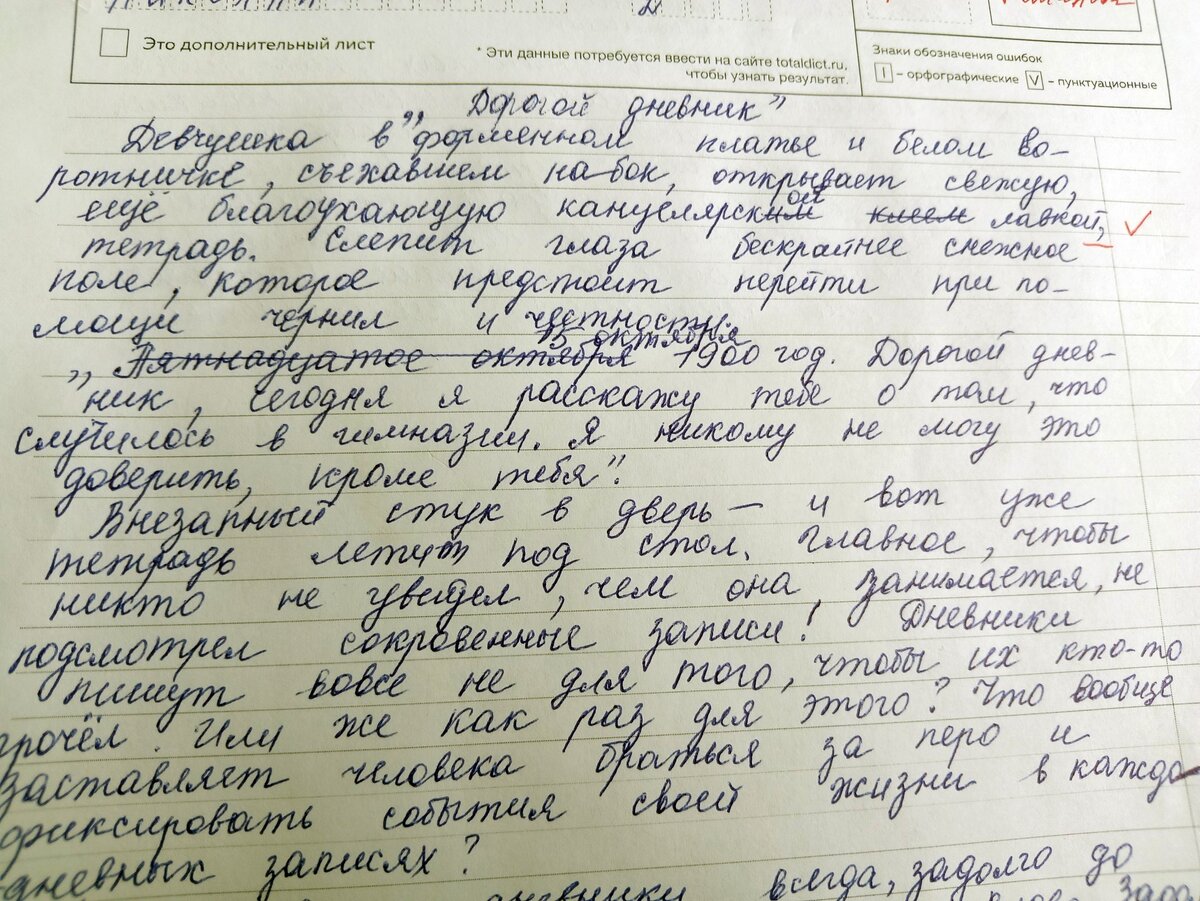 Это дополнительный лист
* Эти данные потребуется ввести на сайте totaldict.ru,
чтобы узнать результат.
Знаки обозначения ошибок
I – орфографические V – пунктуационные
„Дорогой дневник”
Девчушка в форменном платье и белом во-
ротничке, съехавшем на бок, открывает свежую,
ещё благоухающую канцелярской клеем лавкой,
тетрадь. Слепит глаза бескрайнее снежное
поле, которое предстоит перейти при по-
мощи чернил и честности.
15 октября
„Пятнадцатое октября 1900 год. Дорогой днев-
ник, сегодня я расскажу тебе о том, что
случилось в гимназии. Я никому не могу это
доверить, кроме тебя”.
Внезапный стук в дверь – и вот уже
тетрадь летит под стол. Главное, чтобы
никто не увидел, чем она занимается, не
подсмотрел сокровенные записи! Дневники
пишут вовсе не для того, чтобы их кто-то
прочёл. Или же как раз для этого? Что вообще
заставляет человека браться за перо и
фиксировать события своей жизни в каждо
дневных записях?
дневники всегда, задолго до